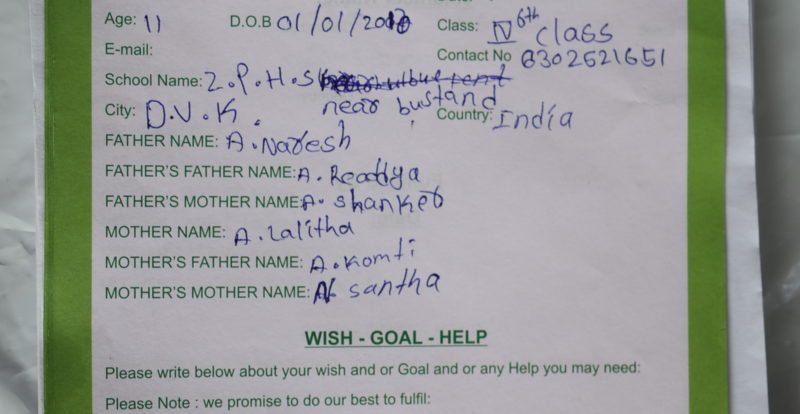 Age: 11 D.O.B 01/01/2010 Class: IV 6th class
E-mail: Contact No 6302521651
School Name: Z.P.H.S near bustand
City: D.V.K. Country: India
FATHER NAME: A.Naresh
FATHER'S FATHER NAME: A. Readdya
FATHER'S MOTHER NAME: A. Shanker
MOTHER NAME: A.Lalitha
MOTHER'S FATHER NAME: A.Komti
MOTHER'S MOTHER NAME: A santha
WISH - GOAL - HELP
Please write below about your wish and or Goal and or any Help you may need:
Please Note : we promise to do our best to fulfil: